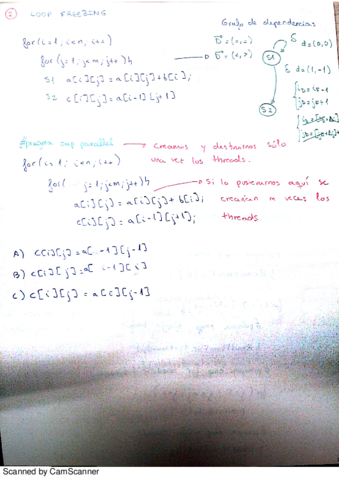 ② LOOP FREEZING
Grafo de dependencias
for(i=1; i<n; i++)
for (j=1; j<m; j++) {
S1 a[i][j] = a[i][j] + b[i];
S2 c[i][j] = a[i-1][j+1]
D = (=, =)
D = (<, >)
S1
δ d = (0, 0)
δ d = (1, -1)
S2
#pragma omp parallel → creamos y destruimos sólo
una vez los threads.
for(i=1; i<n; i++)
for( j=1; j<m; j++) {
→ si lo pusieramos aquí se
a[i][j] = a[i][j] + b[i];
crearían m veces los
c[i][j] = a[i-1][j+1];
threads
A) c[i][j] = a[ -1][j-1]
B) c[i][j] = a[ i-1][j]
C) c[i][j] = a[i][j-1]
Scanned by CamScanner